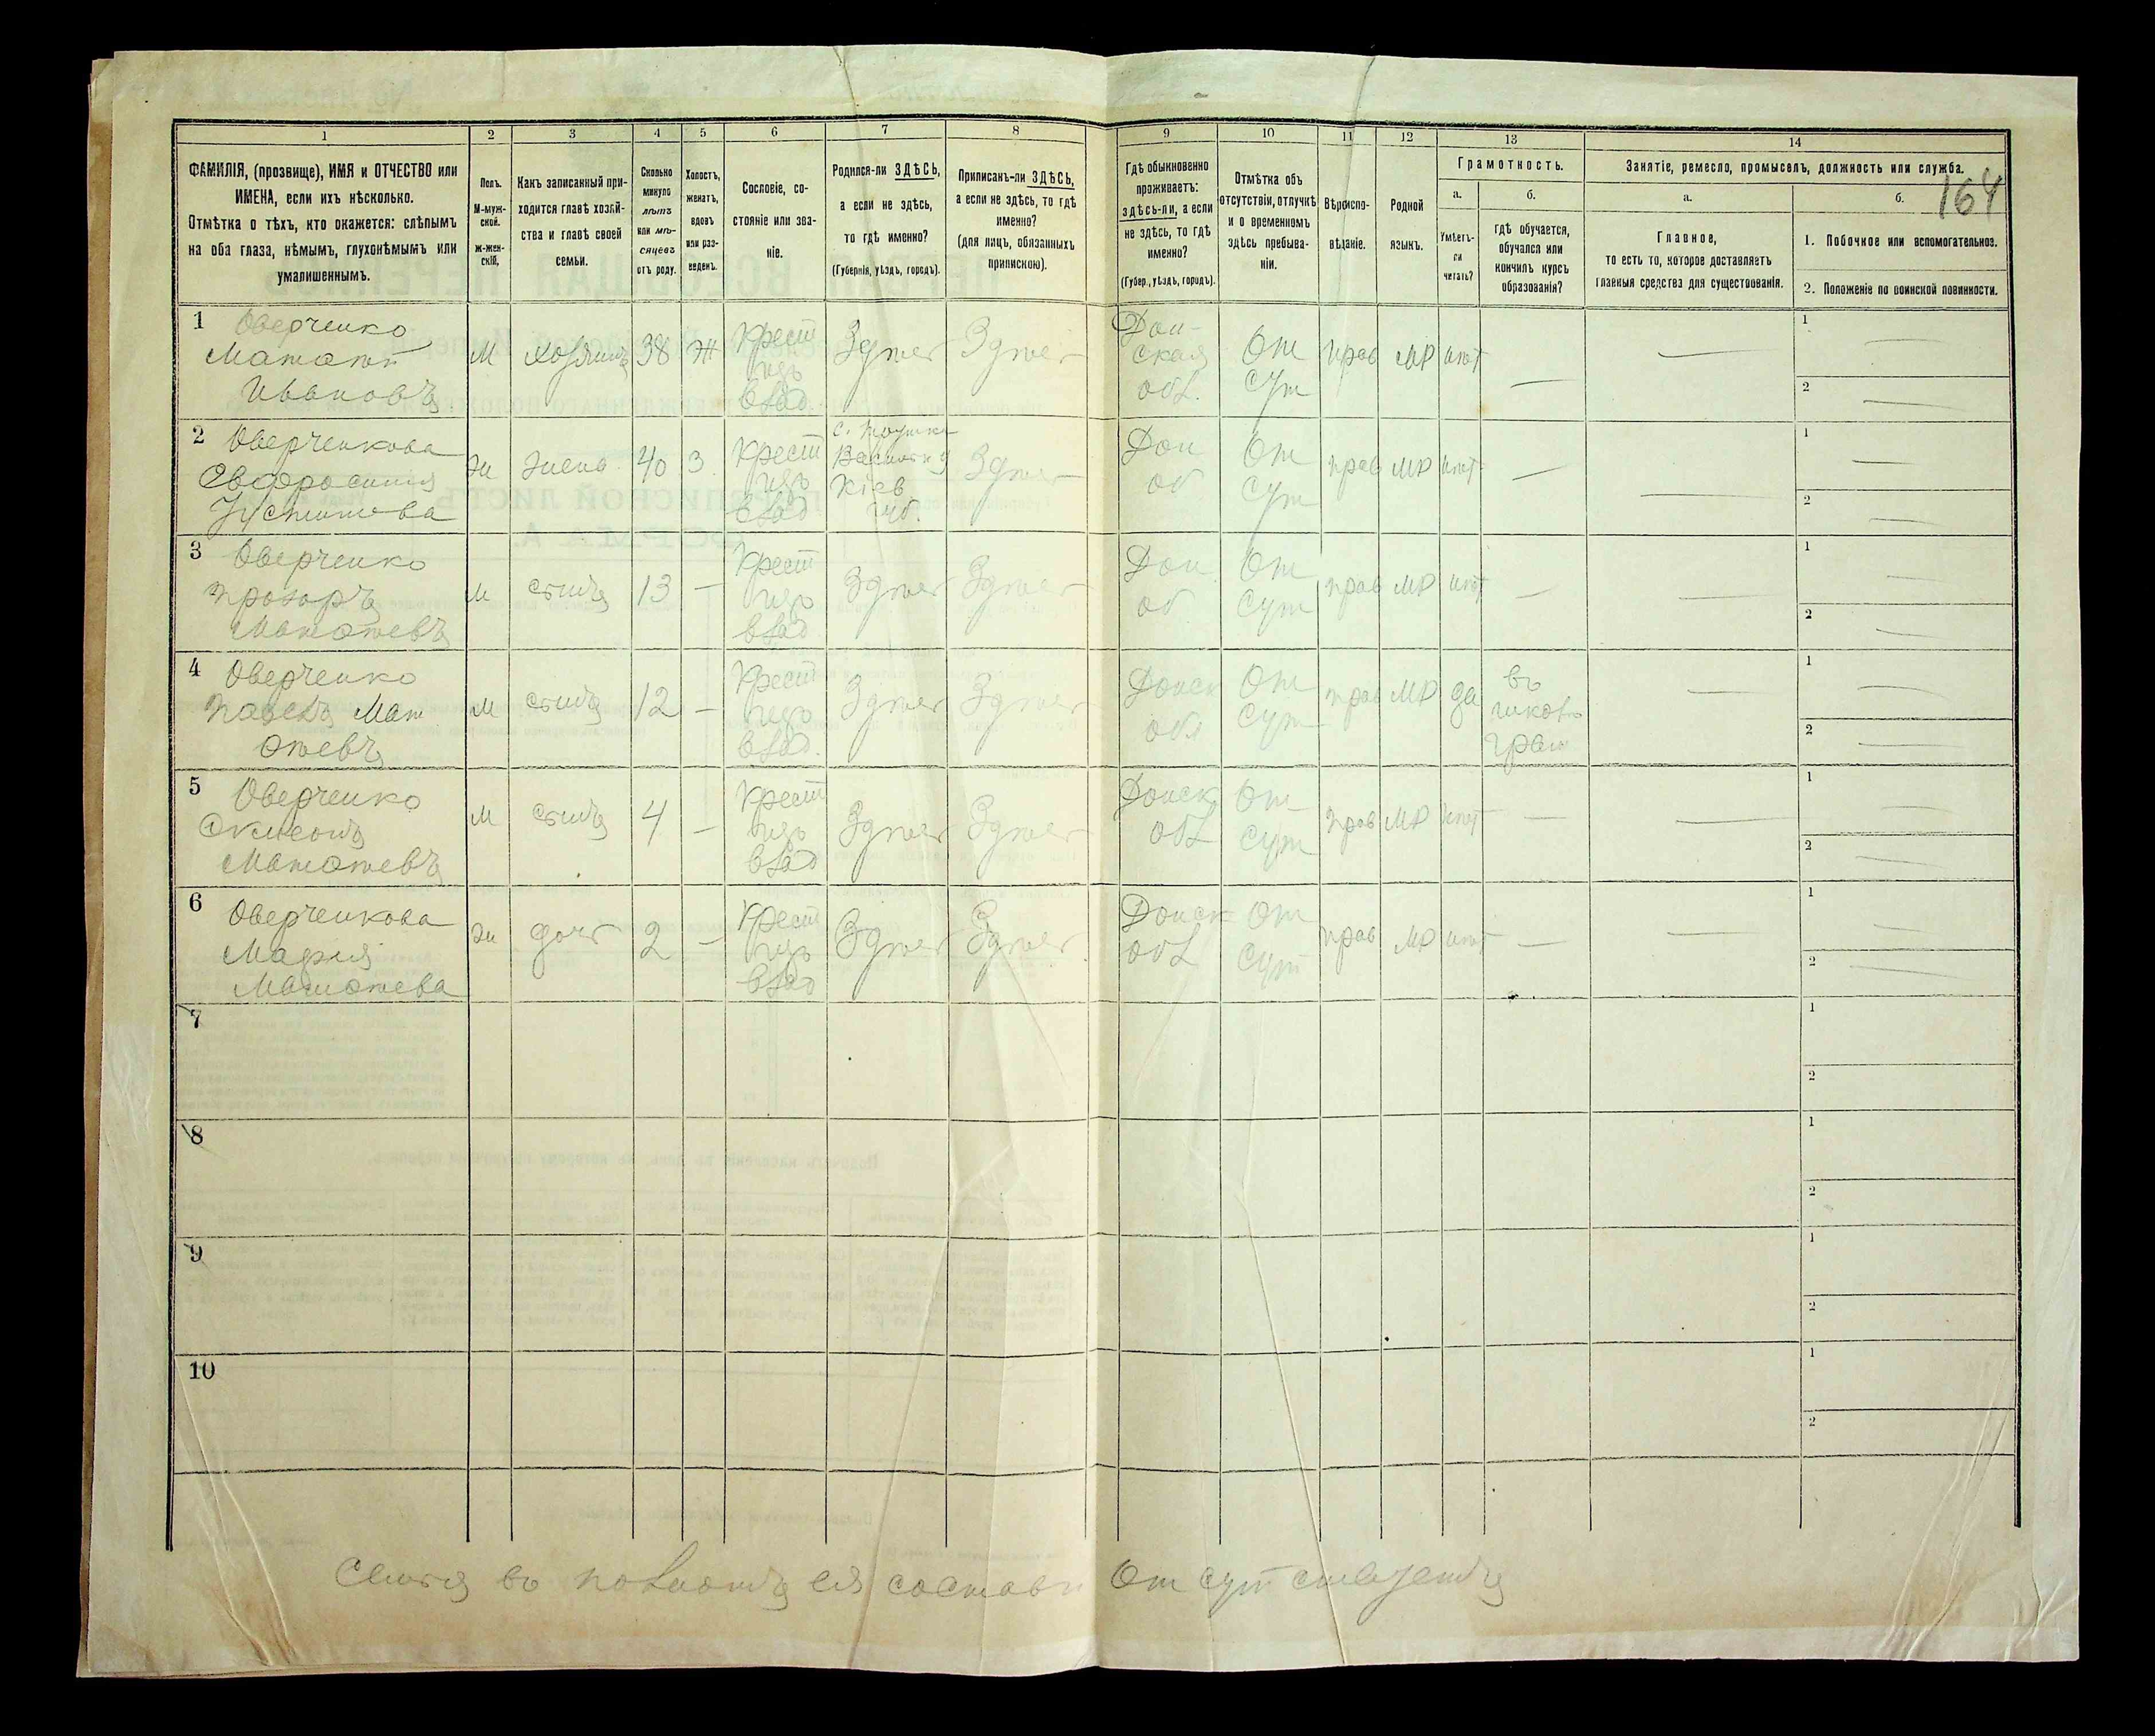 164
1 2 3 4 5 6 7 8 9 10 11 12 13 14
ФАМИЛІЯ, (прозвище), ИМЯ и ОТЧЕСТВО или
ИМЕНА, если ихъ нѣсколько.
Отмѣтка о тѣхъ, кто окажется: слѣпымъ
на оба глаза, нѣмымъ, глухонѣмымъ или
умалишеннымъ.
Полъ.
М-муж-
ской.
ж-жен-
скій.
Какъ записанный при-
ходится главѣ хозяй-
ства и главѣ своей
семьи.
Сколько
минуло
лѣтъ
или мѣ-
сяцевъ
отъ роду.
Холостъ,
женатъ,
вдовъ
или раз-
веденъ.
Сословіе, со-
стояніе или зва-
ніе.
Родился-ли ЗДѢСЬ,
а если не здѣсь,
то гдѣ именно?
(Губернія, уѣздъ, городъ).
Приписанъ-ли ЗДѢСЬ,
а если не здѣсь, то гдѣ
именно?
(для лицъ, обязанныхъ
припискою).
Гдѣ обыкновенно
проживаетъ:
здѣсь-ли, а если
не здѣсь, то гдѣ
именно?
(Губер., уѣздъ, городъ).
Отмѣтка объ
отсутствіи, отлучкѣ
и о временномъ
здѣсь пребыва-
ніи.
Вѣроиспо-
вѣданіе.
Родной
языкъ.
Грамотность.
а.
Умѣетъ-
ли
читать?
б.
гдѣ обучается,
обучался или
кончилъ курсъ
образованія?
Занятіе, ремесло, промыселъ, должность или служба.
а.
Главное,
то есть то, которое доставляетъ
главныя средства для существованія.
б.
1. Побочное или вспомогательное.
2. Положеніе по воинской повинности.
1 Оверченко
Матвѣй
Ивановъ
М
хозяинъ
38
Ж
Крест
изъ
влад
Здѣсь
Здѣсь
Дон-
ская
обл.
От
сут
прав
МР
нѣт
1
2
2 Оверченкова
Евфросинія
Устимова
ж
жена
40
З
Крест
изъ
влад
Кіев
губ.
Здѣсь
Дон
об
От
сут
прав
МР
нѣт
1
2
3 Оверченко
Прохоръ
Матвѣевъ
М
сынъ
13
Крест
изъ
влад
Здѣсь
Здѣсь
Дон
об
От
сут
прав
МР
нѣт
1
2
4 Оверченко
Павелъ Мат
вѣевъ
М
сынъ
12
Крест
изъ
влад.
Здѣсь
Здѣсь
Донск
обл
От
сут
прав
МР
да
въ
школѣ
грам
1
2
5 Оверченко
Симеонъ
Матвѣевъ
М
сынъ
4
Крест
изъ
влад
Здѣсь
Здѣсь
Донск
обл
От
сут
прав
МР
нѣт
1
2
6 Оверченкова
Марія
Матвѣева
ж
дочь
2
Крест
изъ
влад
Здѣсь
Здѣсь
Донск
обл
От
сут
прав
МР
нѣт
1
2
7
1
2
8
1
2
9
1
2
10
1
2
Семья въ полномъ ея составѣ отсутствуетъ